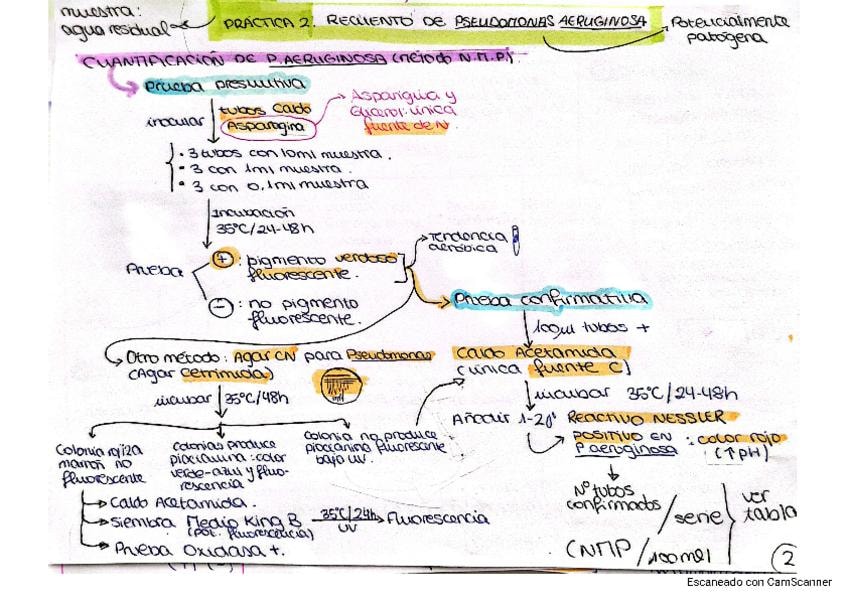 muestra:
agua residual
PRÁCTICA 2. RECUENTO DE PSEUDOMONAS AERUGINOSA
Potencialmente
patógena
CUANTIFICACIÓN DE P. AERUGINOSA (método N.M.P)
Prueba presuntiva
inocular
tubos Caldo
Asparagina
Asparagina y
Glicerol: única
fuente de N.
· 3 tubos con 10ml muestra.
· 3 con 1ml muestra.
· 3 con 0,1ml muestra
Incubación
35ºC/24-48h
Prueba
+ : pigmento verdoso
fluorescente.
- : no pigmento
fluorescente.
Tendencia
aeróbica
Prueba confirmativa
100µl tubos +
Caldo Acetamida
(única fuente C)
incubar 35ºC/24-48h
Añadir 1-2
REACTIVO NESSLER
POSITIVO EN : color rojo
P aeruginosa (↑pH)
Nº tubos
confirmados / serie
ver
tabla
(NMP/100ml
Otro método: Agar CN para Pseudomonas
(Agar Cetrimida)
incubar 35ºC/48h
Colonia rojiza
marrón no
fluorescente
colonias produce
piocianina: color
verde-azul y fluo-
rescencia
Colonia no produce
piocianina fluorescente
bajo UV.
Caldo Acetamida.
Siembra Medio King B 35ºC/24h Fluorescencia
(pot. fluorescencia) UV
Prueba Oxidasa +.
2
Escaneado con CamScanner